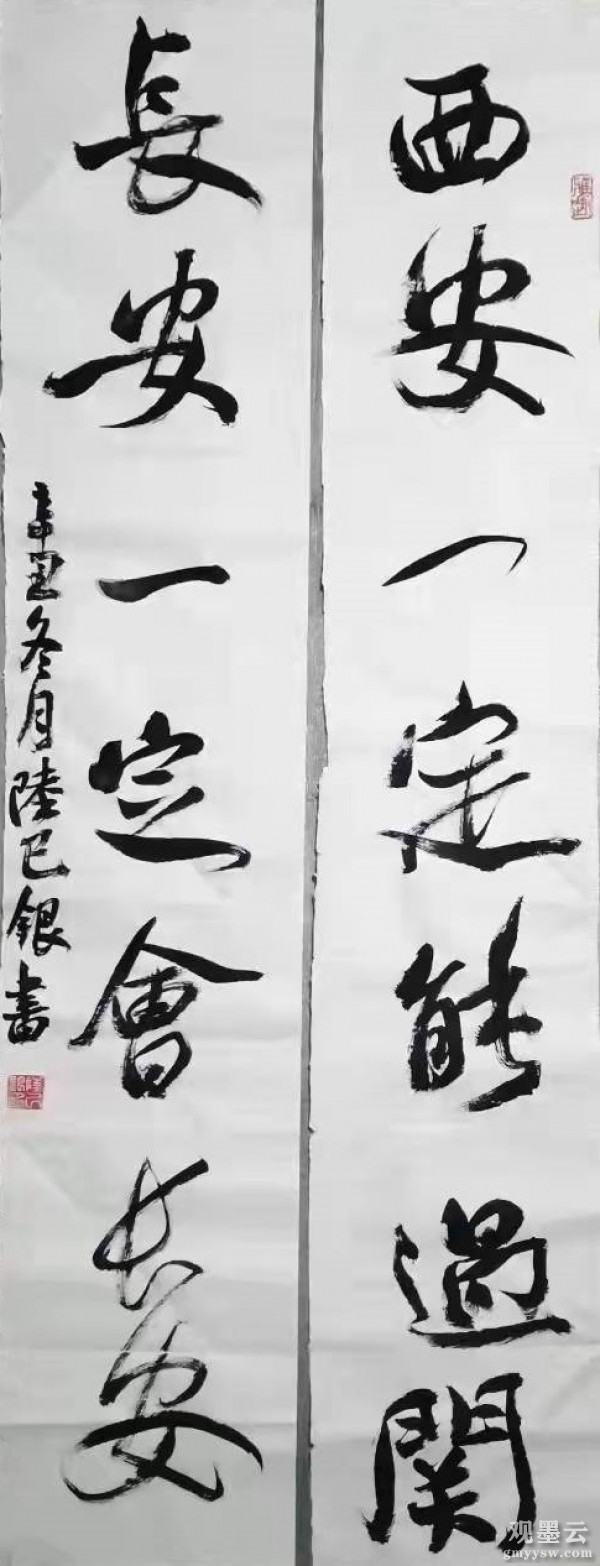 西安一定能過関
長安一定會长安
辛丑冬月陸已銀書
观墨云
gmyysw.com